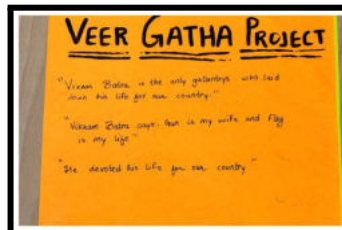 VEER GATHA PROJECT
"Vikram Batra is the only gallantrys who laid
down his life for our country."
"Vikram Batra says. Gun is my wife and Flag
is my life"
"He devoted his life for our country"